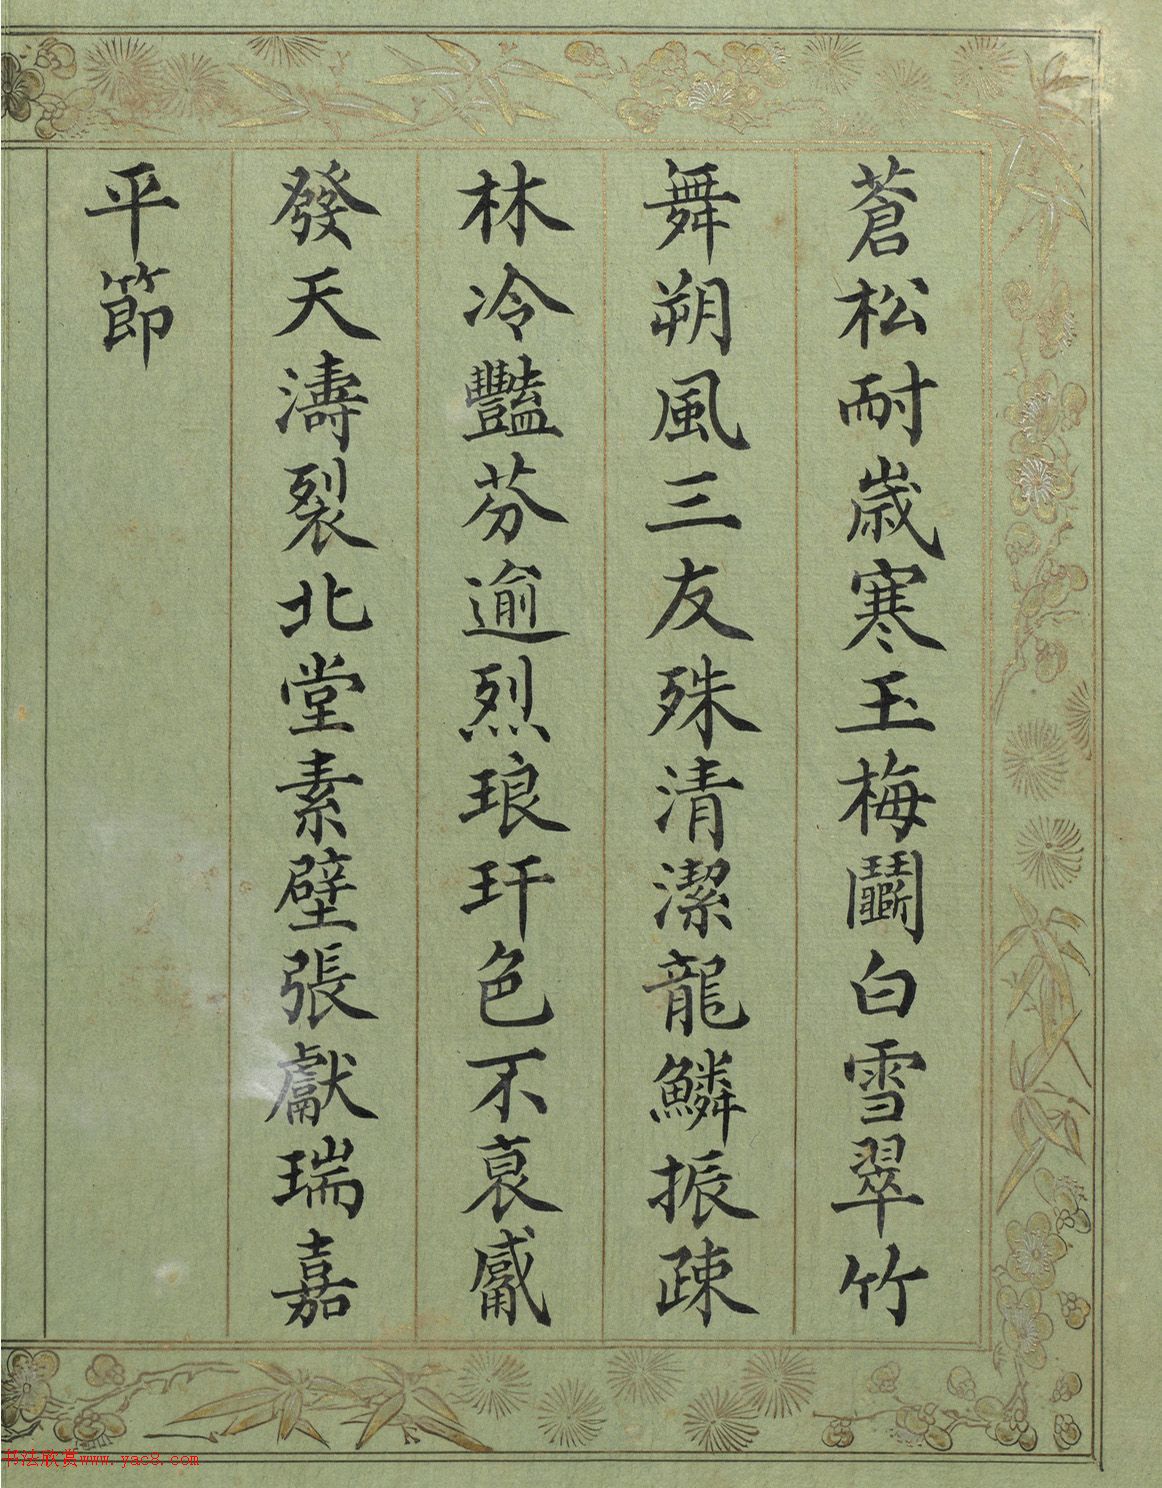 蒼松耐歳寒玉梅鬭白雪翠竹
舞朔風三友殊清潔龍鱗振疎
林冷豔芬逾烈琅玕色不衰觱
發天濤裂北堂素壁張獻瑞嘉
平節
书法欣赏www.yac8.com